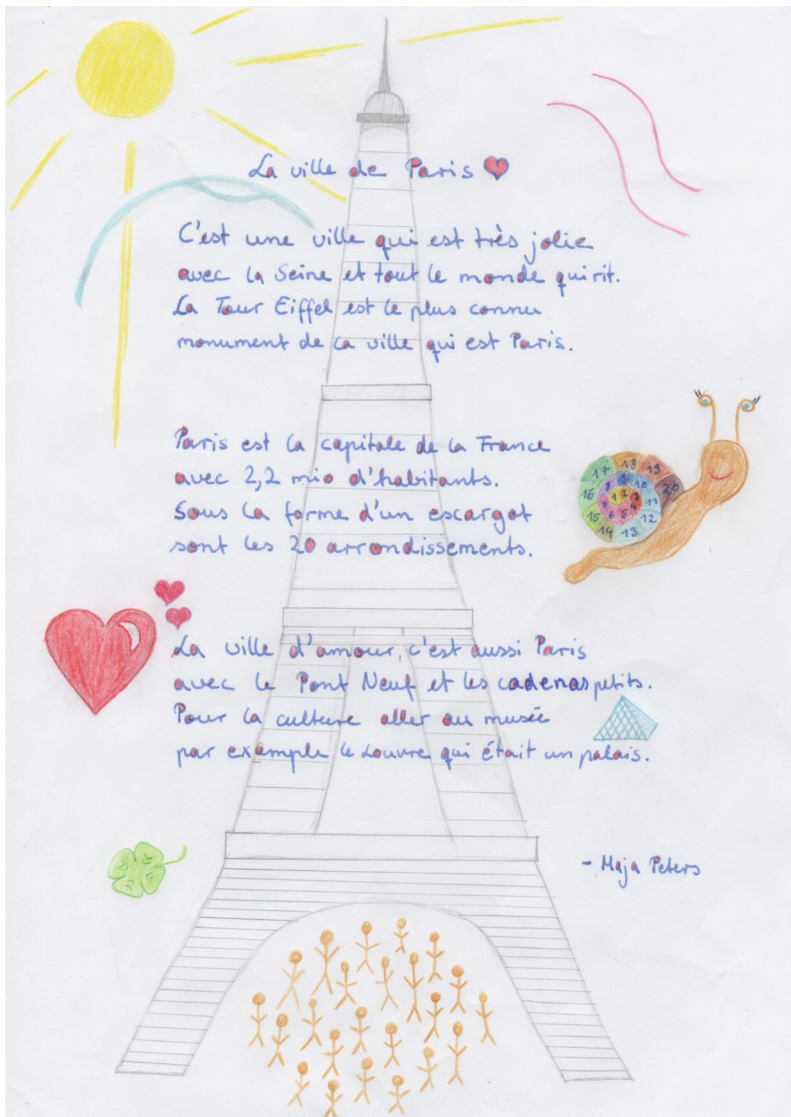 La ville de Paris
C'est une ville qui est très jolie
avec la Seine et tout le monde qui rit.
La Tour Eiffel est le plus connu
monument de la ville qui est Paris.
Paris est la capitale de la France
avec 2,2 mio d'habitants.
Sous la forme d'un escargot
sont les 20 arrondissements.
17 18 19
16 20
15 14 13 12 11
La ville d'amour, c'est aussi Paris
avec le Pont Neuf et les cadenas petits.
Pour la culture aller au musée
par exemple le Louvre qui était un palais.
- Maja Peters